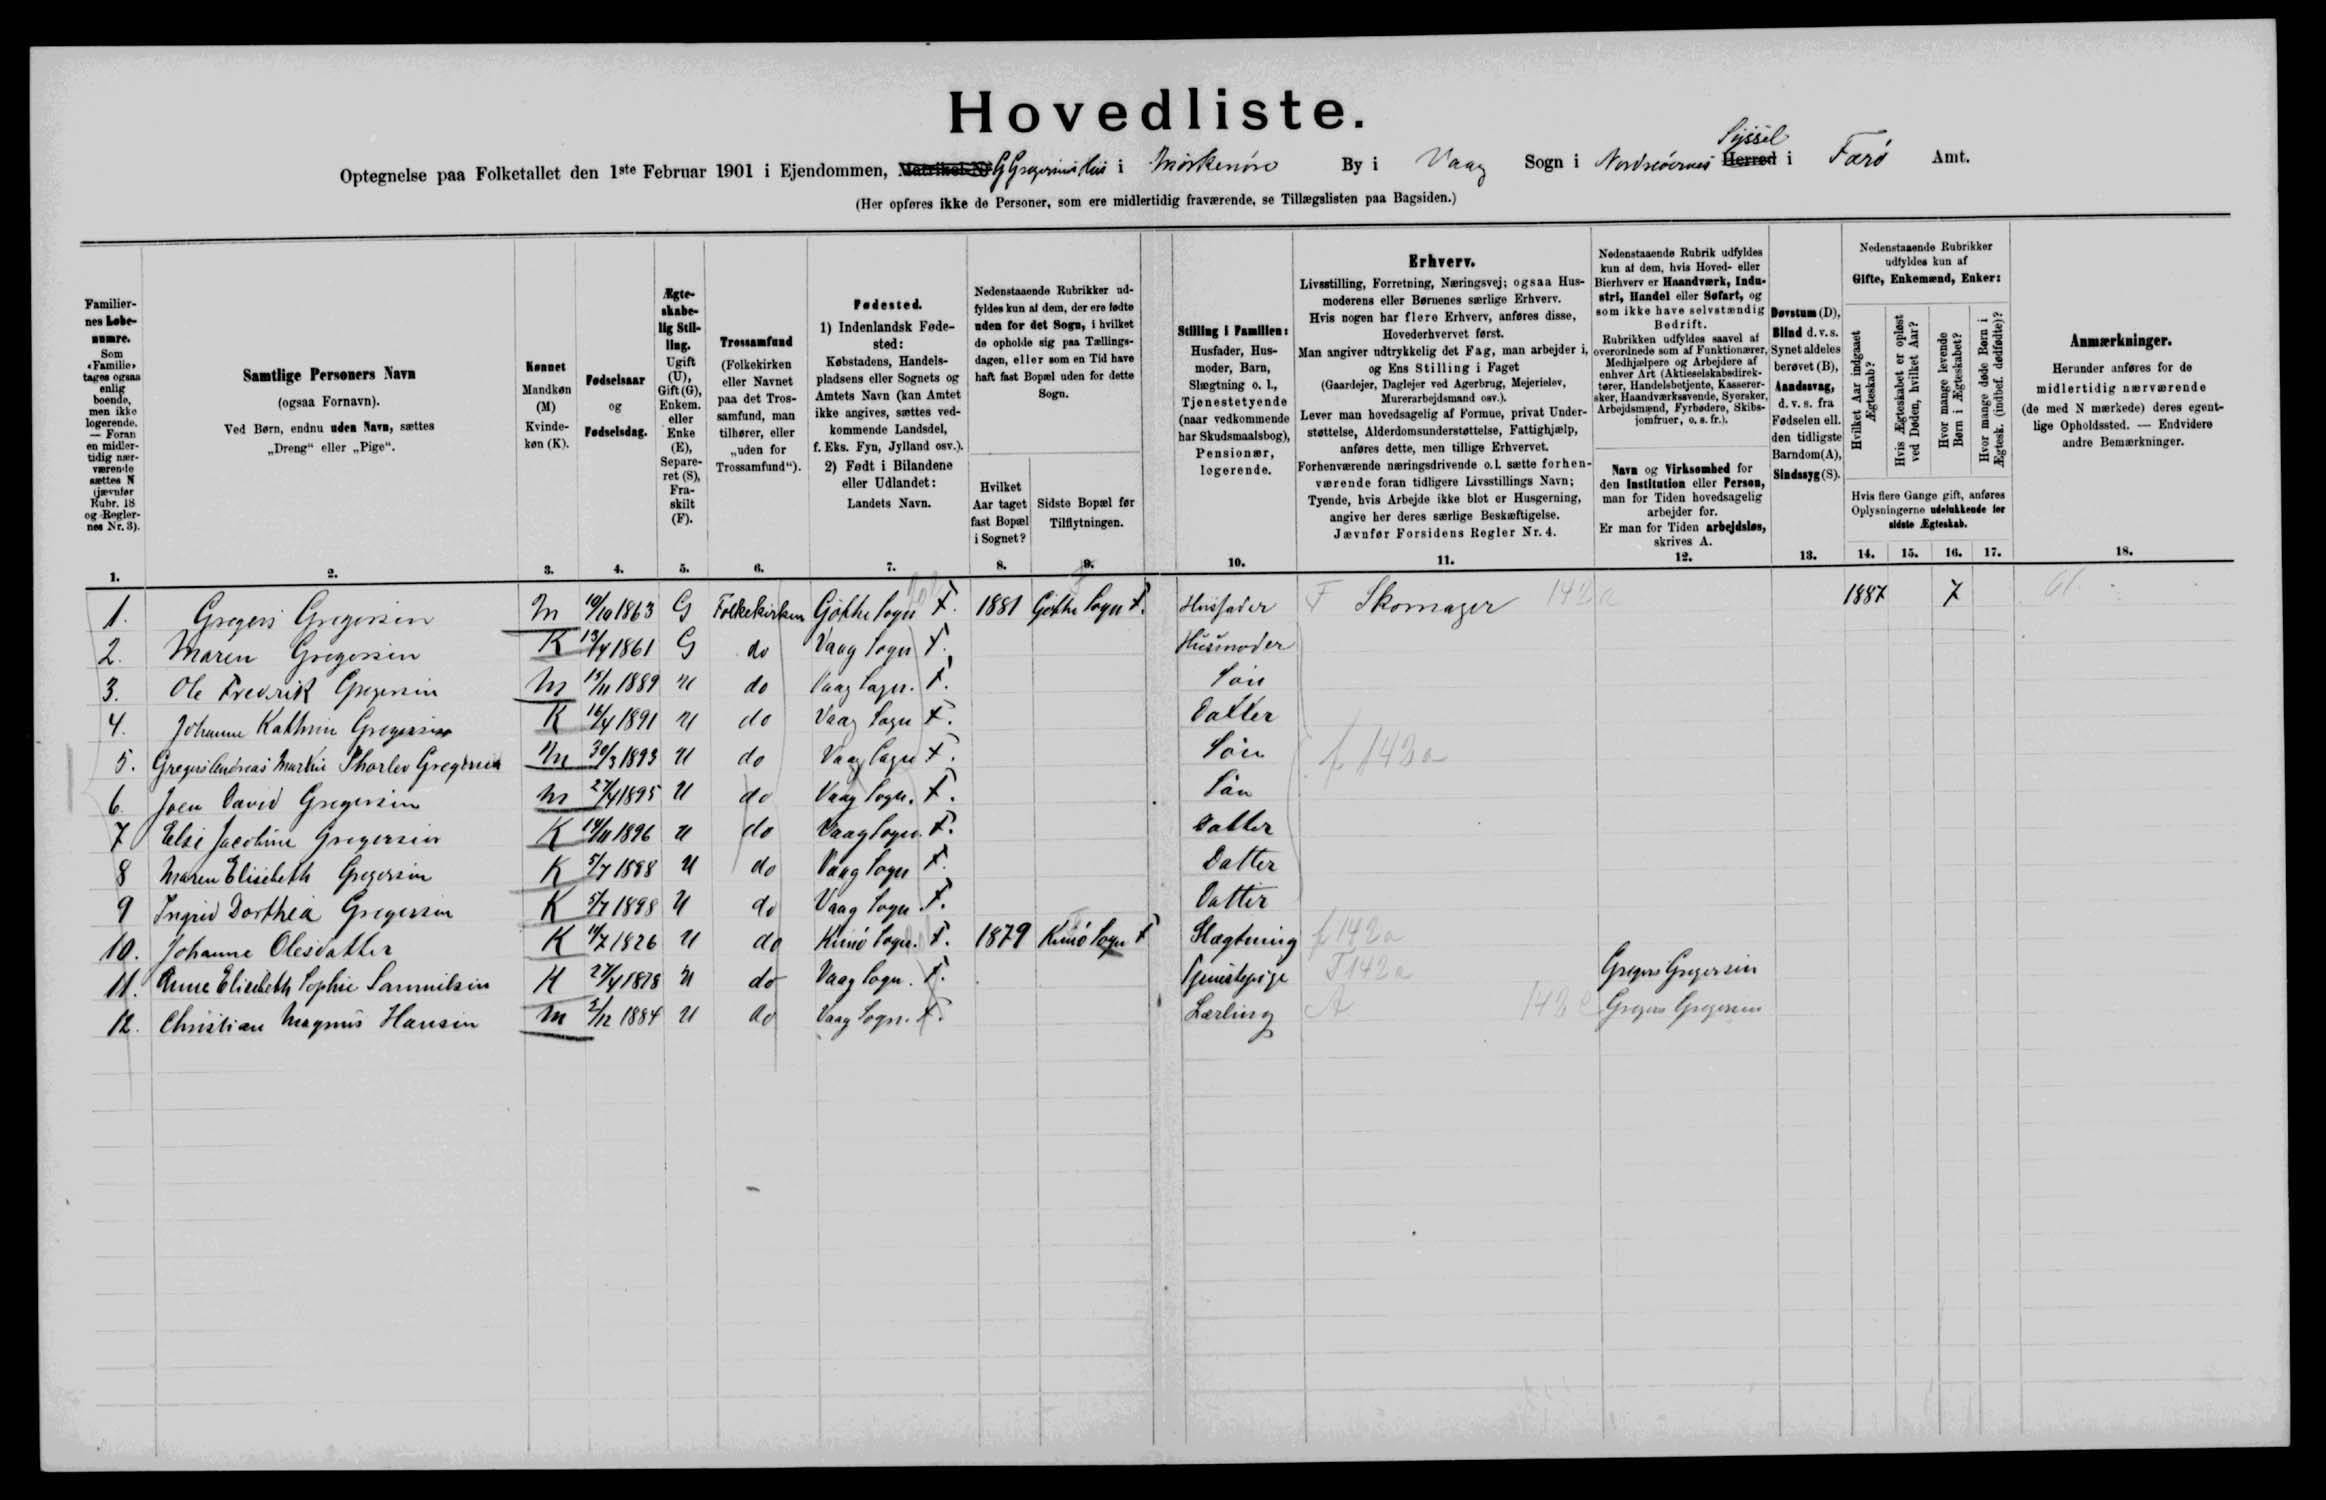 Hovedliste.
Optegnelse paa Folketallet den 1ste Februar 1901 i Ejendommen, Matrikel-Nr G Gregersens Hus i Mørkenøre By i Vaag Sogn i Nordreøernes Herred Syssel i Færø Amt.
(Her opføres ikke de Personer, som ere midlertidig fraværende, se Tillægslisten paa Bagsiden.)
Familiernes Løbenumre. Som «Familie» tages ogsaa enlig boende, men ikke logerende. — Foran en midlertidig nærværende sættes N (jævnfør Rubr. 18 og Reglernes Nr. 3).
Samtlige Personers Navn (ogsaa Fornavn). Ved Børn, endnu uden Navn, sættes „Dreng“ eller „Pige“.
Kønnet Mandkøn (M) Kvindekøn (K).
Fødselsaar og Fødselsdag.
Ægteskabelig Stilling. Ugift (U), Gift (G), Enkem. eller Enke (E), Separeret (S), Fraskilt (F).
Trossamfund (Folkekirken eller Navnet paa det Trossamfund, man tilhører, eller „uden for Trossamfund“).
Fødested. 1) Indenlandsk Fødested: Købstadens, Handelspladsens eller Sognets og Amtets Navn (kan Amtet ikke angives, sættes vedkommende Landsdel, f. Eks. Fyn, Jylland osv.). 2) Født i Bilandene eller Udlandet: Landets Navn.
Nedenstaaende Rubrikker udfyldes kun af dem, der ere fødte uden for det Sogn, i hvilket de opholde sig paa Tællingsdagen, eller som en Tid have haft fast Bopæl uden for dette Sogn.
Hvilket Aar taget fast Bopæl i Sognet?
Sidste Bopæl før Tilflytningen.
Stilling i Familien: Husfader, Husmoder, Barn, Slægtning o. l., Tjenestetyende (naar vedkommende har Skudsmaalsbog), Pensionær, logerende.
Erhverv.
Livsstilling, Forretning, Næringsvej; ogsaa Husmoderens eller Børnenes særlige Erhverv.
Hvis nogen har flere Erhverv, anføres disse, Hovederhvervet først.
Man angiver udtrykkelig det Fag, man arbejder i, og Ens Stilling i Faget
(Gaardejer, Daglejer ved Agerbrug, Mejerielev, Murerarbejdsmand osv.).
Lever man hovedsagelig af Formue, privat Understøttelse, Alderdomsunderstøttelse, Fattighjælp, anføres dette, men tillige Erhvervet.
Forhenværende næringsdrivende o. l. sætte forhenværende foran tidligere Livsstillings Navn;
Tyende, hvis Arbejde ikke blot er Husgerning, angive her deres særlige Beskæftigelse.
Jævnfør Forsidens Regler Nr. 4.
Nedenstaaende Rubrik udfyldes kun af dem, hvis Hoved- eller Bierhverv er Haandværk, Industri, Handel eller Søfart, og som ikke have selvstændig Bedrift.
Rubrikken udfyldes saavel af overordnede som af Funktionærer, Medhjælpere og Arbejdere af enhver Art (Aktieselskabsdirektører, Handelsbetjente, Kasserersker, Haandværkssvende, Syersker, Arbejdsmænd, Fyrbødere, Skibsjomfruer, o. s. fr.).
Navn og Virksomhed for den Institution eller Person, man for Tiden hovedsagelig arbejder for.
Er man for Tiden arbejdsløs, skrives A.
Døvstum (D), Blind d. v. s. Synet aldeles berøvet (B), Aandssvag, d. v. s. fra Fødselen ell. den tidligste Barndom (A), Sindssyg (S).
Nedenstaaende Rubrikker udfyldes kun af Gifte, Enkemænd, Enker:
Hvilket Aar indgaaet Ægteskab?
Hvis Ægteskabet er opløst ved Døden, hvilket Aar?
Hvor mange levende Børn i Ægteskabet?
Hvor mange døde Børn i Ægtesk. (indbef. dødfødte)?
Hvis flere Gange gift, anføres Oplysningerne udelukkende for sidste Ægteskab.
Anmærkninger.
Herunder anføres for de midlertidig nærværende (de med N mærkede) deres egentlige Opholdssted. — Endvidere andre Bemærkninger.
1. 2. 3. 4. 5. 6. 7. 8. 9. 10. 11. 12. 13. 14. 15. 16. 17. 18.
1. Gregers Gregersen M 10/10 1863 G Folkekirken Gjóthe Sogn F. 1881 Gjóthe Sogn F. Husfader F Skomager 142a 1887 7
2. Maren Gregersen K 13/4 1861 G do Vaag Sogn F. Husmoder
3. Ole Fredrik Gregersen M 15/11 1889 U do Vaag Sogn. F. Søn
4. Johanne Kathrine Gregersen K 16/4 1891 U do Vaag Sogn F. Datter
5. Gregers Andreas Martin Thorlev Gregersen M 30/3 1893 U do Vaag Sogn F. Søn f 142a
6. Joen David Gregersen M 27/4 1895 U do Vaag Sogn. F. Søn
7 Else Jacobine Gregersen K 14/11 1896 U do Vaag Sogn. F. Datter
8 Maren Elisebeth Gregersen K 5/7 1898 U do Vaag Sogn F. Datter
9 Ingrid Dorthea Gregersen K 5/7 1898 U do Vaag Sogn F. Datter
10. Johanne Olesdatter K 11/7 1826 U do Kunø Sogn. F. 1879 Kunø Sogn F Slægtning f 142a
11. Anne Elisebeth Sophie Samuelsen K 27/4 1878 U do Vaag Sogn. F. Tjenestepige T 142a Gregers Gregersen
12. Christian Magnus Hansen M 3/12 1884 U do Vaag Sogn. F. Lærling A 142 Gregers Gregersen